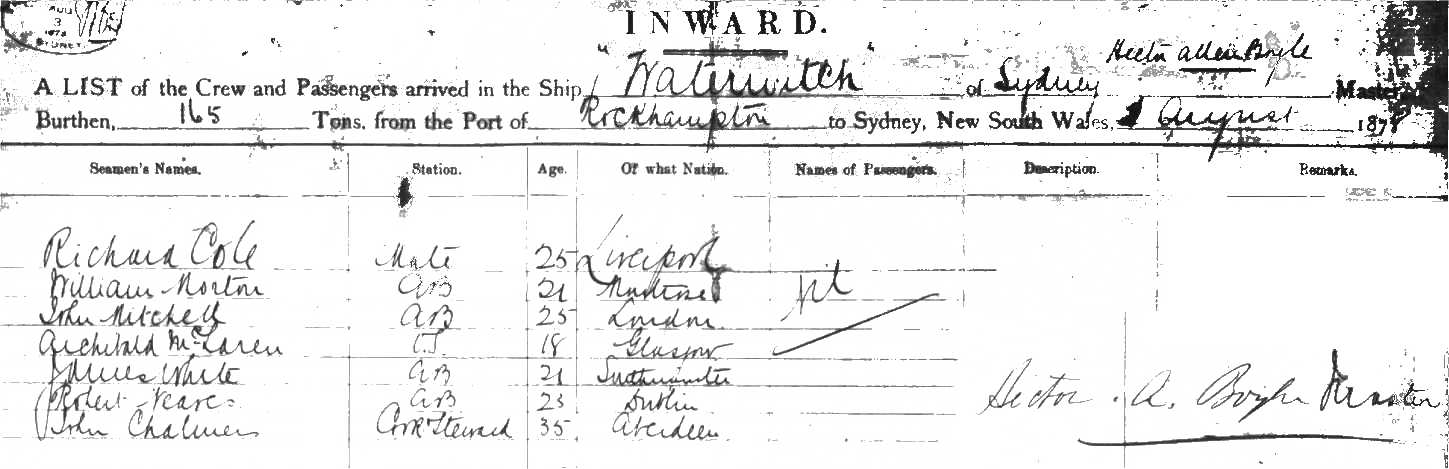 AUG
3
1878
SYDNEY
INWARD.
Hector Allen Boyle
A LIST of the Crew and Passengers arrived in the Ship "Waterwitch" of Sydney Master,
Burthen, 165 Tons. from the Port of Rockhampton to Sydney, New South Wales, August 1878
Seamen's Names. Station. Age. Of what Nation. Names of Passengers. Description. Remarks.
Richard Cole Mate 25 Liverpool
William Morton AB 21 Montrose nil
John Mitchell AB 25 London
Archibald McLaren 18 Glasgow
James White AB 21
Robert AB 23 Dublin Hector A. Boyle Master
John Chalmers Cook Steward 35 Aberdeen